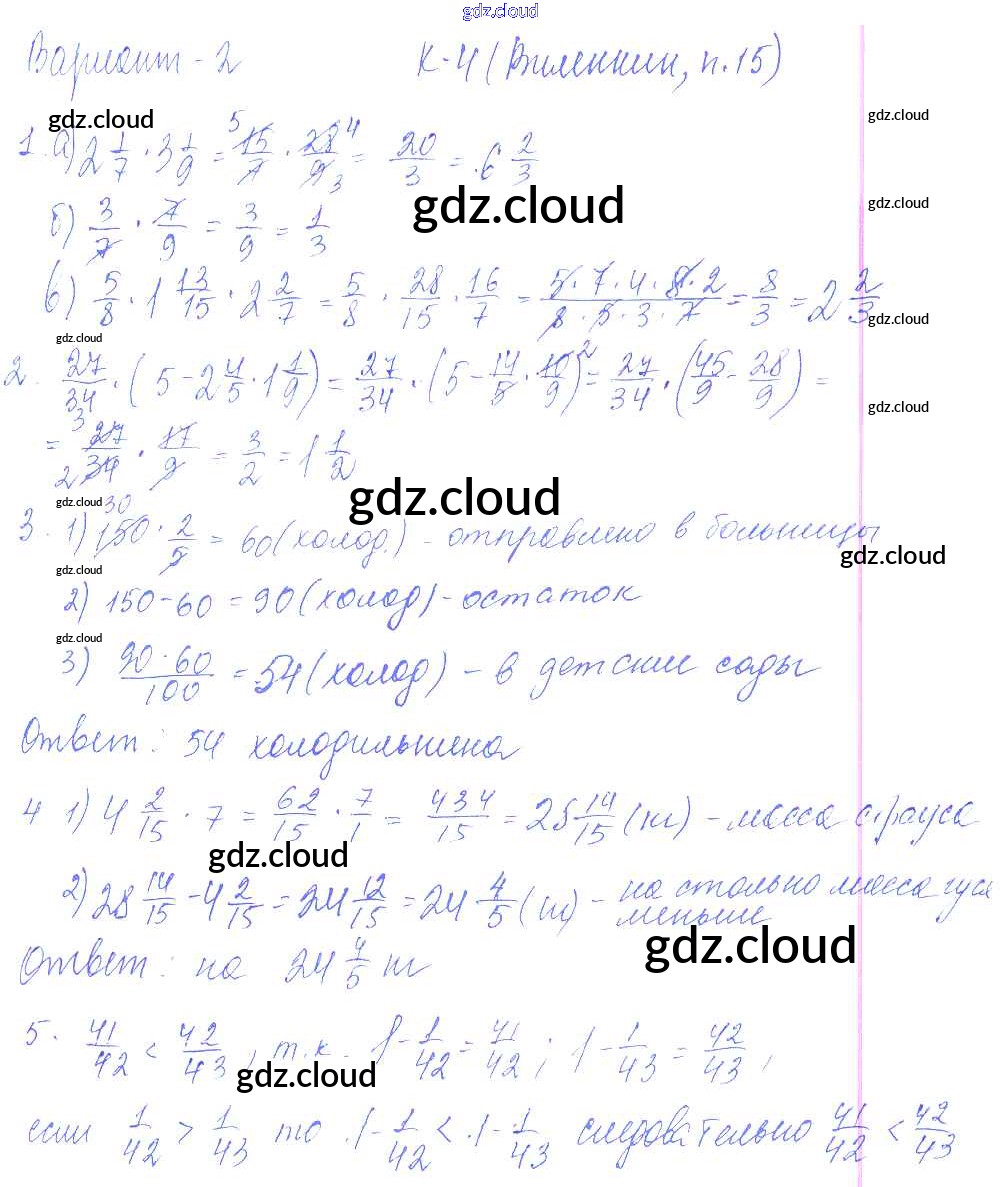 gdz.cloud
Вариант - 2 К-4 (Виленкин, п.15)
gdz.cloud gdz.cloud
1. а) 2 1/7 · 3 1/9 = 15/7 · 28/9 = 20/3 = 6 2/3
5 4 3
gdz.cloud gdz.cloud
б) 3/7 · 7/9 = 3/9 = 1/3
в) 5/8 · 1 13/15 · 2 2/7 = 5/8 · 28/15 · 16/7 = 5·7·4·8·2/8·5·3·7 = 8/3 = 2 2/3
gdz.cloud gdz.cloud
2. 27/34 · (5 - 2 4/5 · 1 1/9) = 27/34 · (5 - 14/5 · 10/9) = 27/34 · (45/9 - 28/9) =
2
gdz.cloud
= 27/34 · 17/9 = 3/2 = 1 1/2
3 2
gdz.cloud gdz.cloud
3. 1) 150 · 2/5 = 60 (холод.) - отправлено в больницы
30
gdz.cloud gdz.cloud
2) 150 - 60 = 90 (холод) - остаток
gdz.cloud
3) 90 · 60/100 = 54 (холод) - в детские сады
Ответ: 54 холодильника
4 1) 4 2/15 · 7 = 62/15 · 7/1 = 434/15 = 28 14/15 (кг) - масса страуса
gdz.cloud
2) 28 14/15 - 4 2/15 = 24 12/15 = 24 4/5 (кг) - на столько масса гуся
меньше
gdz.cloud
Ответ: на 24 4/5 кг
5. 41/42 < 42/43, т.к. 1 - 1/42 = 41/42; 1 - 1/43 = 42/43,
gdz.cloud
если 1/42 > 1/43 то 1 - 1/42 < 1 - 1/43 следовательно 41/42 < 42/43